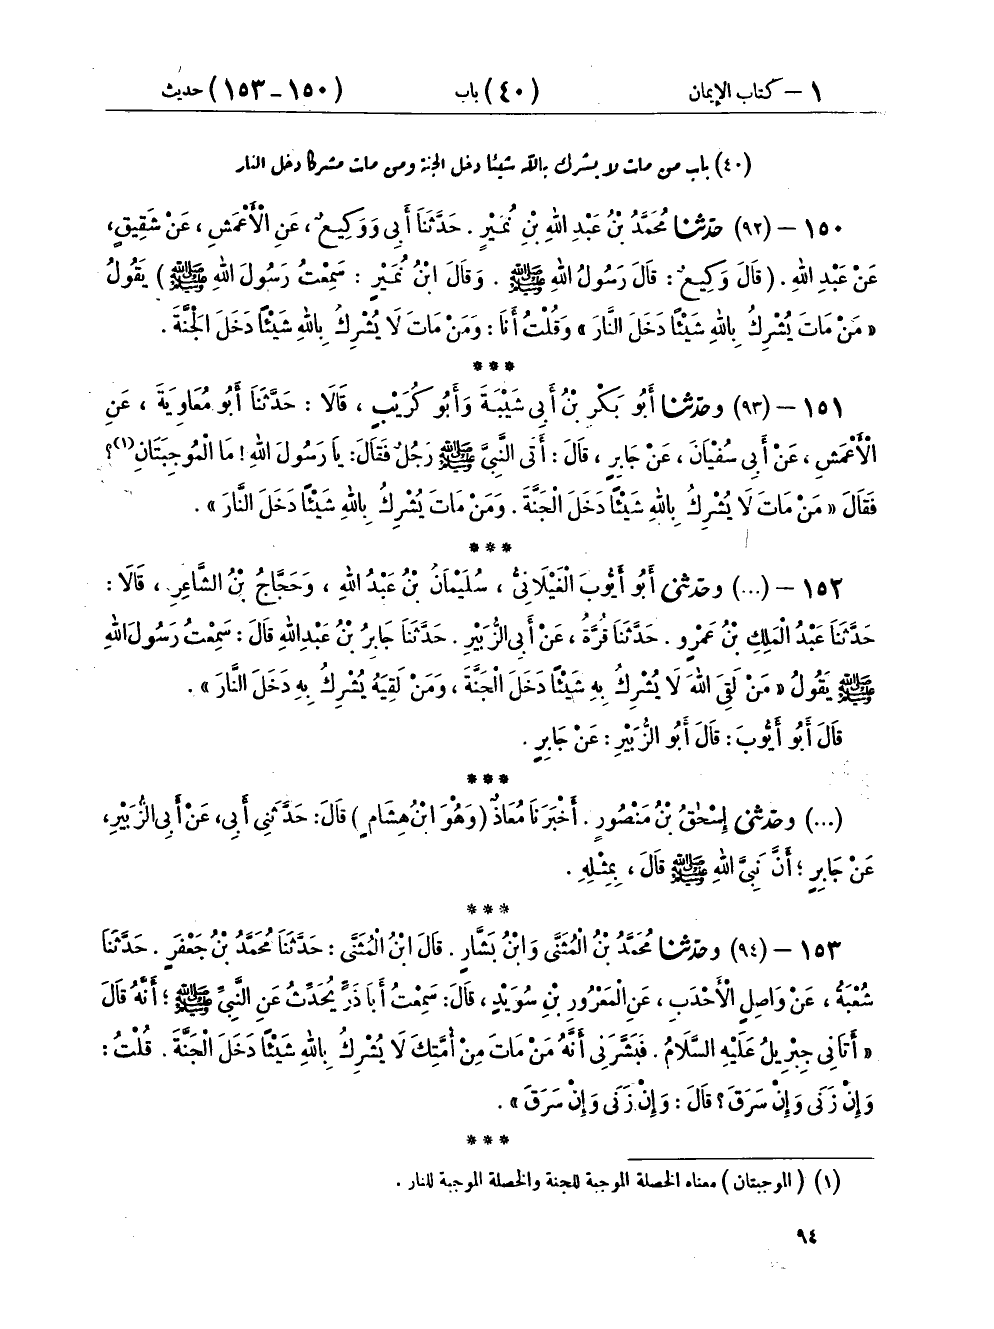 ١ – كتاب الإيمان (٤٠) باب (١٥٠ – ١٥٣) حديث
(٤٠) باب من مات لا يشرك بالله شيئا دخل الجنة ومن مات مشركا دخل النار
١٥٠ – (٩٢) حدثنا مُحَمَّدُ بْنُ عَبْدِ اللهِ بْنِ نُمَيْرٍ . حَدَّثَنَا أَبِي وَوَكِيعٌ ، عَنِ الْأَعْمَشِ ، عَنْ شَقِيقٍ ،
عَنْ عَبْدِ اللهِ . ( قَالَ وَكِيعٌ : قَالَ رَسُولُ اللهِ ﷺ . وَقَالَ ابْنُ نُمَيْرٍ : سَمِعْتُ رَسُولَ اللهِ ﷺ ) يَقُولُ
« مَنْ مَاتَ يُشْرِكُ بِاللهِ شَيْئًا دَخَلَ النَّارَ » وَقُلْتُ أَنَا : وَمَنْ مَاتَ لَا يُشْرِكُ بِاللهِ شَيْئًا دَخَلَ الْجَنَّةَ .
***
١٥١ – (٩٣) وحدثنا أَبُو بَكْرِ بْنُ أَبِي شَيْبَةَ وَأَبُو كُرَيْبٍ ، قَالَا : حَدَّثَنَا أَبُو مُعَاوِيَةَ ، عَنِ
الْأَعْمَشِ ، عَنْ أَبِي سُفْيَانَ ، عَنْ جَابِرٍ ، قَالَ : أَتَى النَّبِيَّ ﷺ رَجُلٌ فَقَالَ : يَا رَسُولَ اللهِ ! مَا الْمُوجِبَتَانِ(١)؟
فَقَالَ « مَنْ مَاتَ لَا يُشْرِكُ بِاللهِ شَيْئًا دَخَلَ الْجَنَّةَ . وَمَنْ مَاتَ يُشْرِكُ بِاللهِ شَيْئًا دَخَلَ النَّارَ » .
***
١٥٢ – (...) وحدثني أَبُو أَيُّوبَ الْغَيْلَانِيُّ ، سُلَيْمَانُ بْنُ عَبْدُ اللهِ ، وَحَجَّاجُ بْنُ الشَّاعِرِ ، قَالَا :
حَدَّثَنَا عَبْدُ الْمَلِكِ بْنُ عَمْرٍو . حَدَّثَنَا قُرَّةُ ، عَنْ أَبِي الزُّبَيْرِ . حَدَّثَنَا جَابِرُ بْنُ عَبْدِ اللهِ قَالَ : سَمِعْتُ رَسُولَ اللهِ
ﷺ يَقُولُ « مَنْ لَقِيَ اللهَ لَا يُشْرِكُ بِهِ شَيْئًا دَخَلَ الْجَنَّةَ ، وَمَنْ لَقِيَهُ يُشْرِكُ بِهِ دَخَلَ النَّارَ » .
قَالَ أَبُو أَيُّوبَ : قَالَ أَبُو الزُّبَيْرِ : عَنْ جَابِرٍ .
***
(...) وحدثني إِسْحَٰقُ بْنُ مَنْصُورٍ . أَخْبَرَنَا مُعَاذٌ ( وَهُوَ ابْنُ هِشَامٍ ) قَالَ : حَدَّثَنِي أَبِي ، عَنْ أَبِي الزُّبَيْرِ ،
عَنْ جَابِرٍ ؛ أَنَّ نَبِيَّ اللهِ ﷺ قَالَ ، بِمِثْلِهِ .
***
١٥٣ – (٩٤) وحدثنا مُحَمَّدُ بْنُ الْمُثَنَّى وَابْنُ بَشَّارٍ . قَالَ ابْنُ الْمُثَنَّى : حَدَّثَنَا مُحَمَّدُ بْنُ جَعْفَرٍ . حَدَّثَنَا
شُعْبَةُ ، عَنْ وَاصِلٍ الْأَحْدَبِ ، عَنِ الْمَعْرُورِ بْنِ سُوَيْدٍ ، قَالَ : سَمِعْتُ أَبَا ذَرٍّ يُحَدِّثُ عَنِ النَّبِيِّ ﷺ ؛ أَنَّهُ قَالَ
« أَتَانِي جِبْرِيلُ عَلَيْهِ السَّلَامُ . فَبَشَّرَنِي أَنَّهُ مَنْ مَاتَ مِنْ أُمَّتِكَ لَا يُشْرِكُ بِاللهِ شَيْئًا دَخَلَ الْجَنَّةَ . قُلْتُ :
وَإِنْ زَنَى وَإِنْ سَرَقَ ؟ قَالَ : وَإِنْ زَنَى وَإِنْ سَرَقَ » .
***
(١) ( الموجبتان ) معناه الخصلة الموجبة للجنة والخصلة الموجبة للنار .
٩٤